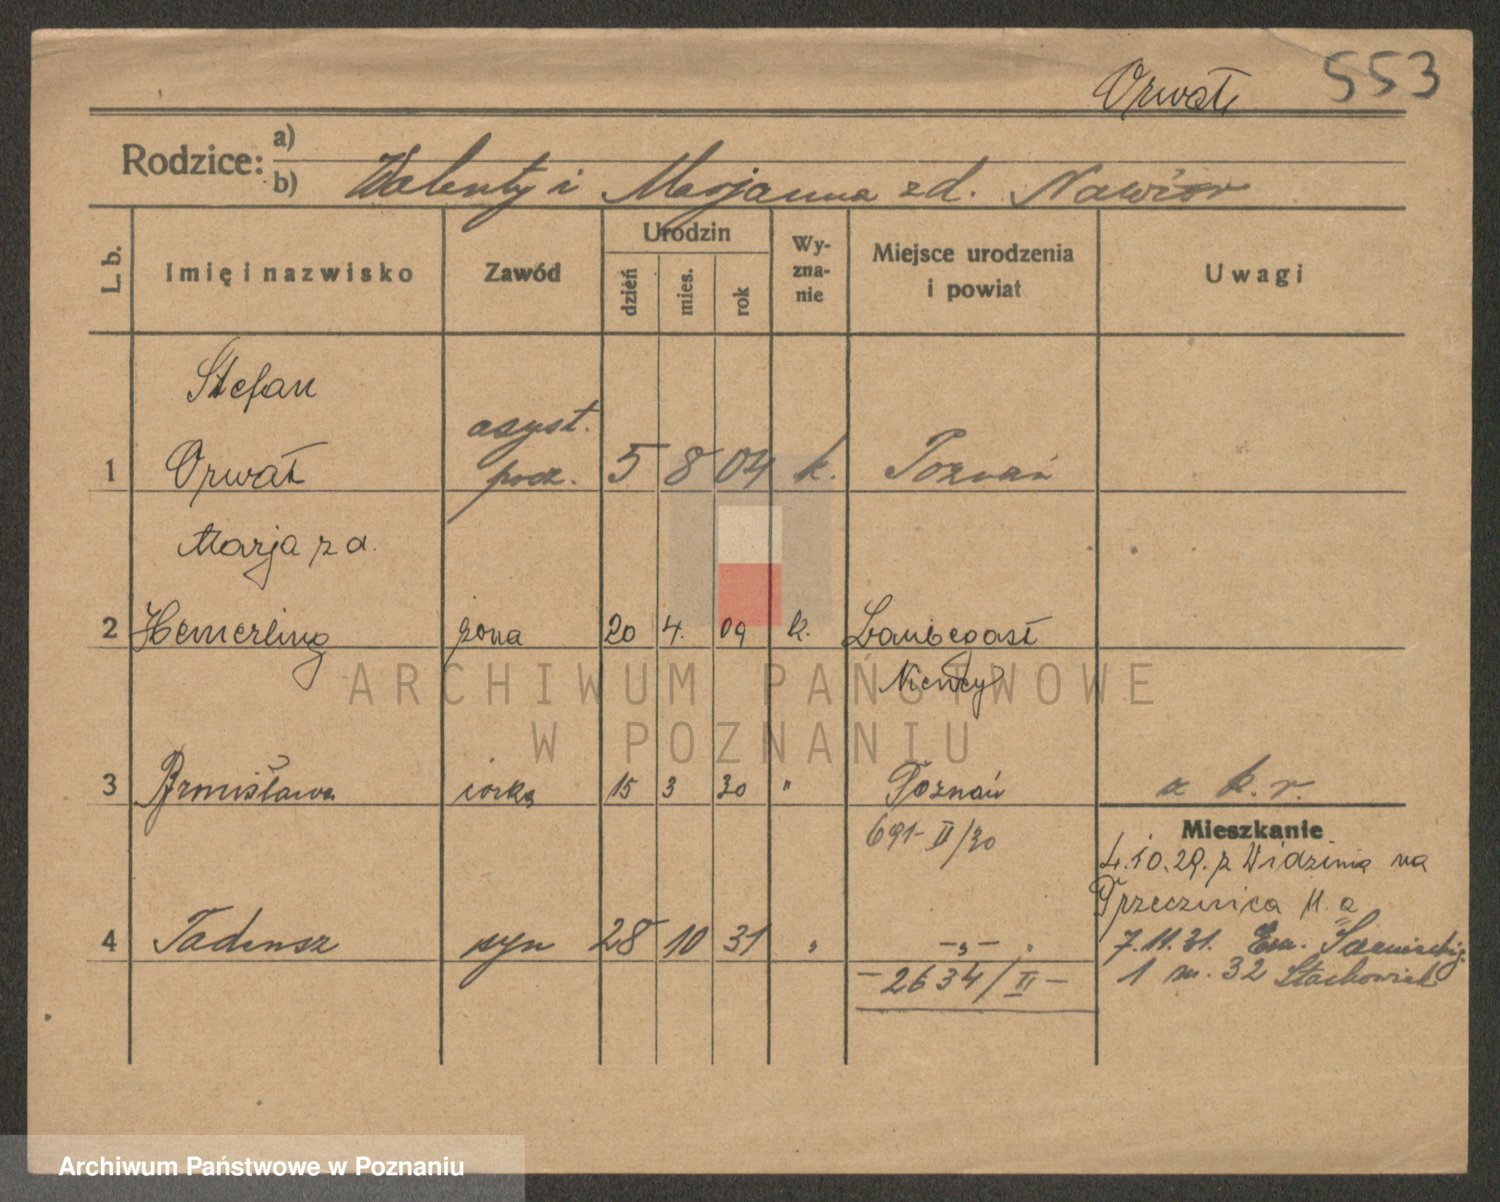 Orwat 553
Rodzice: a)
b) Walenty i Marjanna zd. Nawrot
L. b. Imię i nazwisko Zawód Urodzin dzień mies. rok Wy-zna-nie Miejsce urodzenia i powiat Uwagi
Stefan
1 Orwat asyst. poczt. 5 8 04 k. Poznań
Marja z d.
2 Hemerling żona 20 4. 09 k.
Niemcy
3 Bronisława córka 15 3 30 " Poznań k. r.
691-II/30
Mieszkanie
4.10.29. z Widzimia na
Przecznica 11 a
4 Tadeusz syn 28 10 31 " -„-
7.11.31. Em.
1 m. 32 Stachowiak
-2634/II-
ARCHIWUM PAŃSTWOWE
W POZNANIU
Archiwum Państwowe w Poznaniu